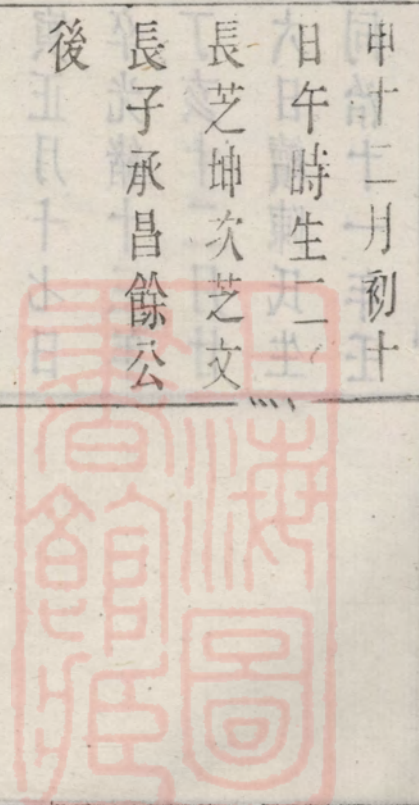 申十二月初十
日午時生二
長芝坤次芝文
長子承昌餘公
後
上海圖
書館藏